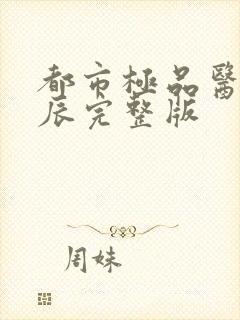 都市極品醫
辰完整版
周妹